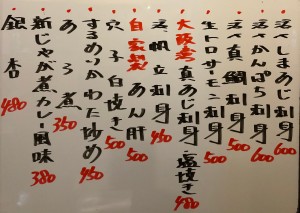 活〆しまあじ刺身 600
活〆かんぱち刺身 600
活〆真鯛刺身 500
生トロサーモン刺身 500
大阪産真あじ刺身・塩焼き 480
活帆立刺身 450
自家製あん肝 500
穴子白焼き 500
するめいかわた炒め 450
あら煮 350
新じゃが煮カレー風味 380
銀杏 480